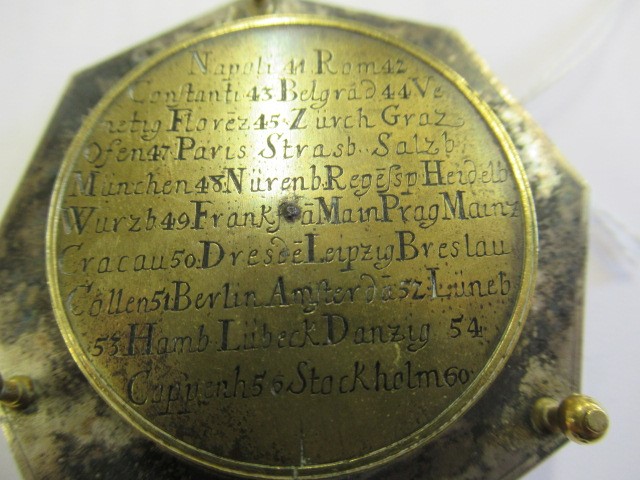 Napoli 41 Rom 42
Constanti 43 Belgrād 44 Ve
netig Florēz 45 Zurch Graz
Ofen 47 Paris Strasb Salzb
München 48 Nürenb Regēſsp Heidelb
Wurzb 49 Frankf ā Main Prag Mainz
Cracau 50. Dresdē Leipzig Breslau
Cöllen 51 Berlin Amſterda 52 Lüneb
53 Hamb Lübeck Danzig 54
Coppenh 56 Stockholm 60.